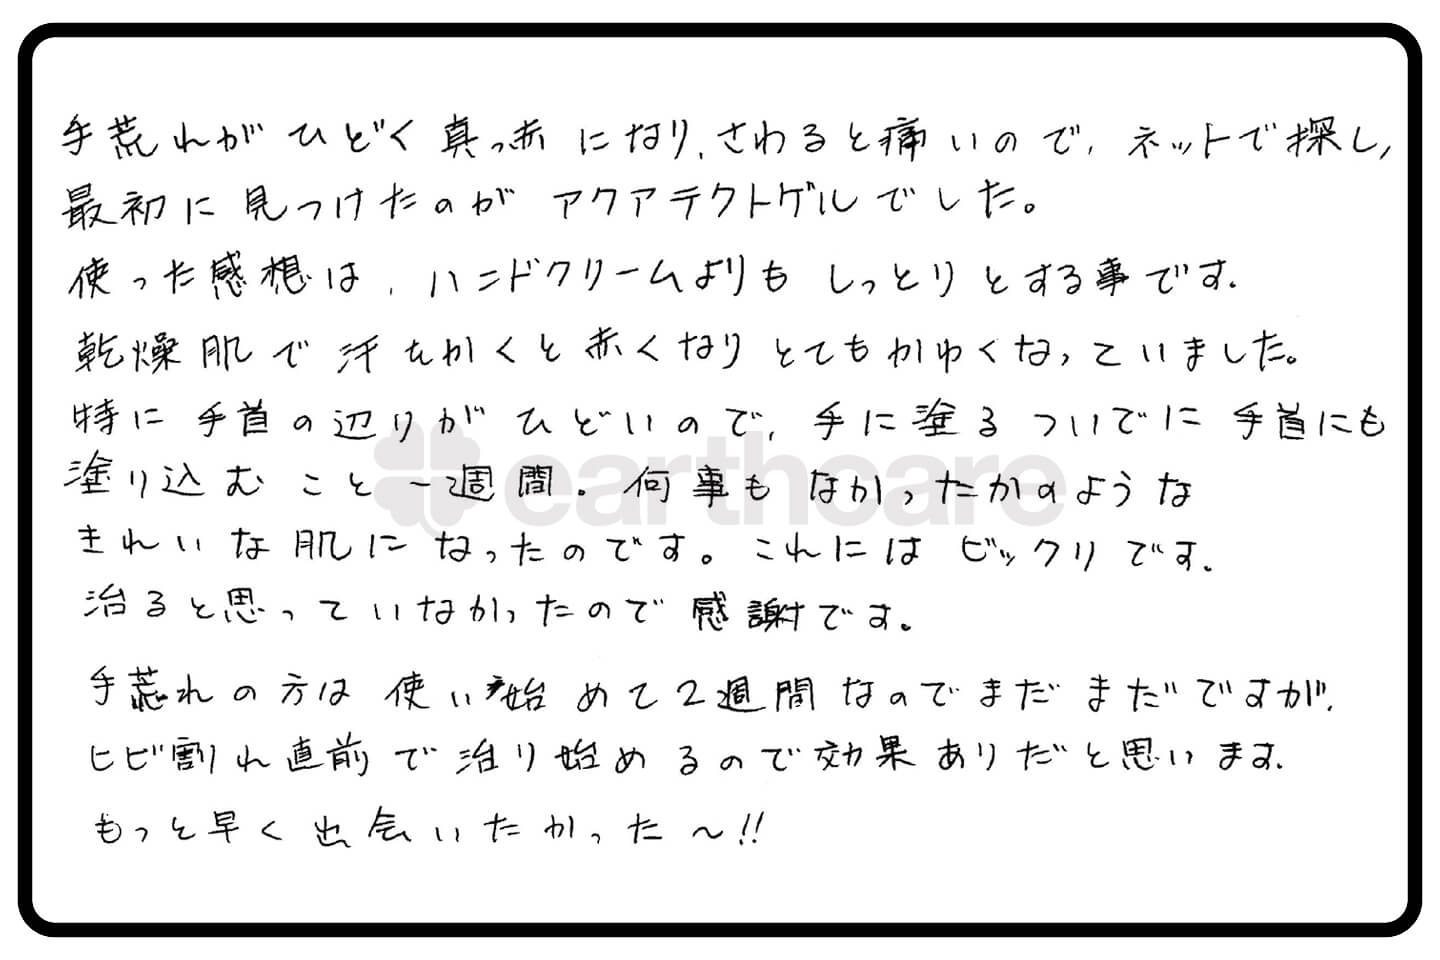 手荒れがひどく真っ赤になり、さわると痛いので、ネットで探し、
最初に見つけたのがアクアテクトゲルでした。
使った感想は、ハンドクリームよりもしっとりとする事です。
乾燥肌で汗をかくと赤くなりとてもかゆくなっていました。
特に手首の辺りがひどいので、手に塗るついでに手首にも
塗り込むこと一週間。何事もなかったかのような
きれいな肌になったのです。これにはビックリです。
治ると思っていなかったので感謝です。
手荒れの方は使い始めて2週間なのでまだまだですが、
ヒビ割れ直前で治り始めるので効果ありだと思います。
もっと早く出会いたかった〜!!
earthcare